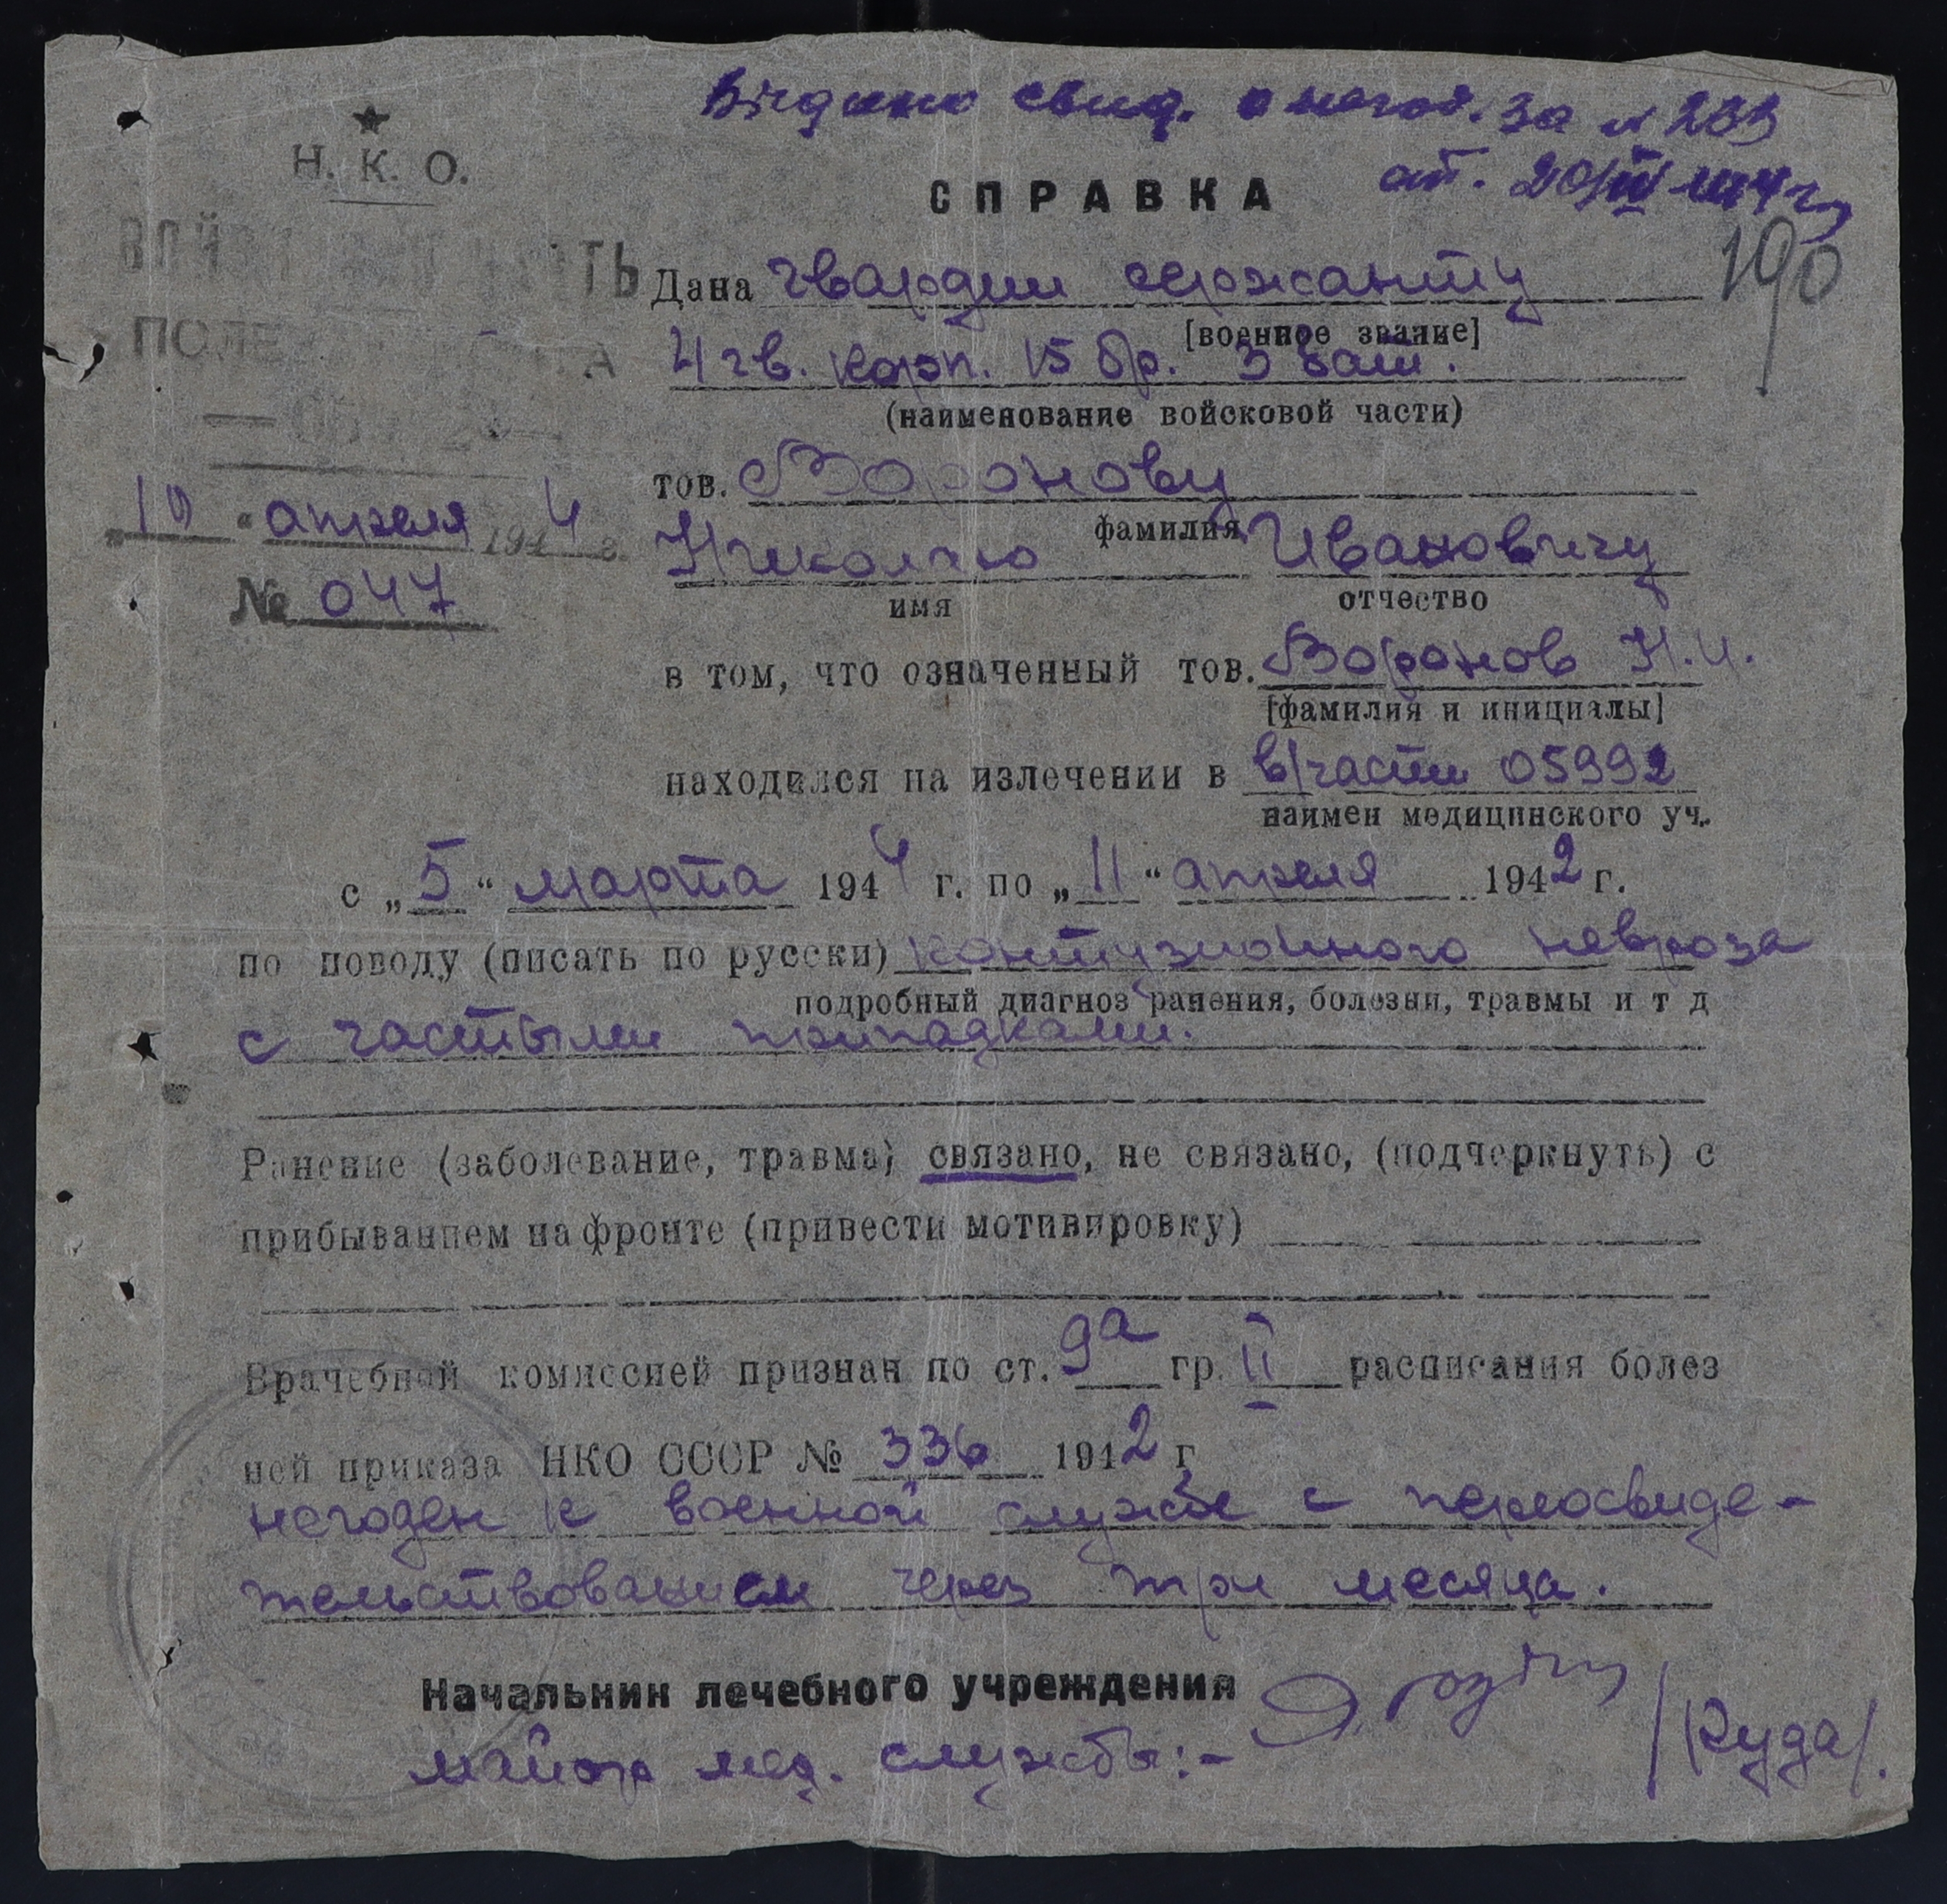 Видано свид. о негод. за № 233
от. 20/IV 1944 г
190
★
Н. К. О.
СПРАВКА
ПОЛЕ
Дана гвардии сержанту
[военное звание]
4 гв. корп. 15 бр. 3 бат.
(наименование войсковой части)
тов. Воронову
фамилия
„10“ апреля 1944 г.
№ 047
Николаю Ивановичу
имя отчество
в том, что означенный тов. Воронов Н.И.
[фамилия и инициалы]
находился на излечении в в/части 05992
наимен медицинского уч.
с „5“ марта 1944 г. по „11“ апреля 1942 г.
по поводу (писать по русски) контузионного невроза
подробный диагноз ранения, болезни, травмы и т д
с частыми припадками.
Ранение (заболевание, травма) связано, не связано, (подчеркнуть) с
прибыванием на фронте (привести мотивировку)
Врачебной комиссией признан по ст. 9а гр. II расписания болез
ней приказа НКО СССР № 336 1942 г
негоден к военной службе с переосвиде-
тельствованием через три месяца.
Начальник лечебного учреждения
майор мед. службы:-
/Куда/.